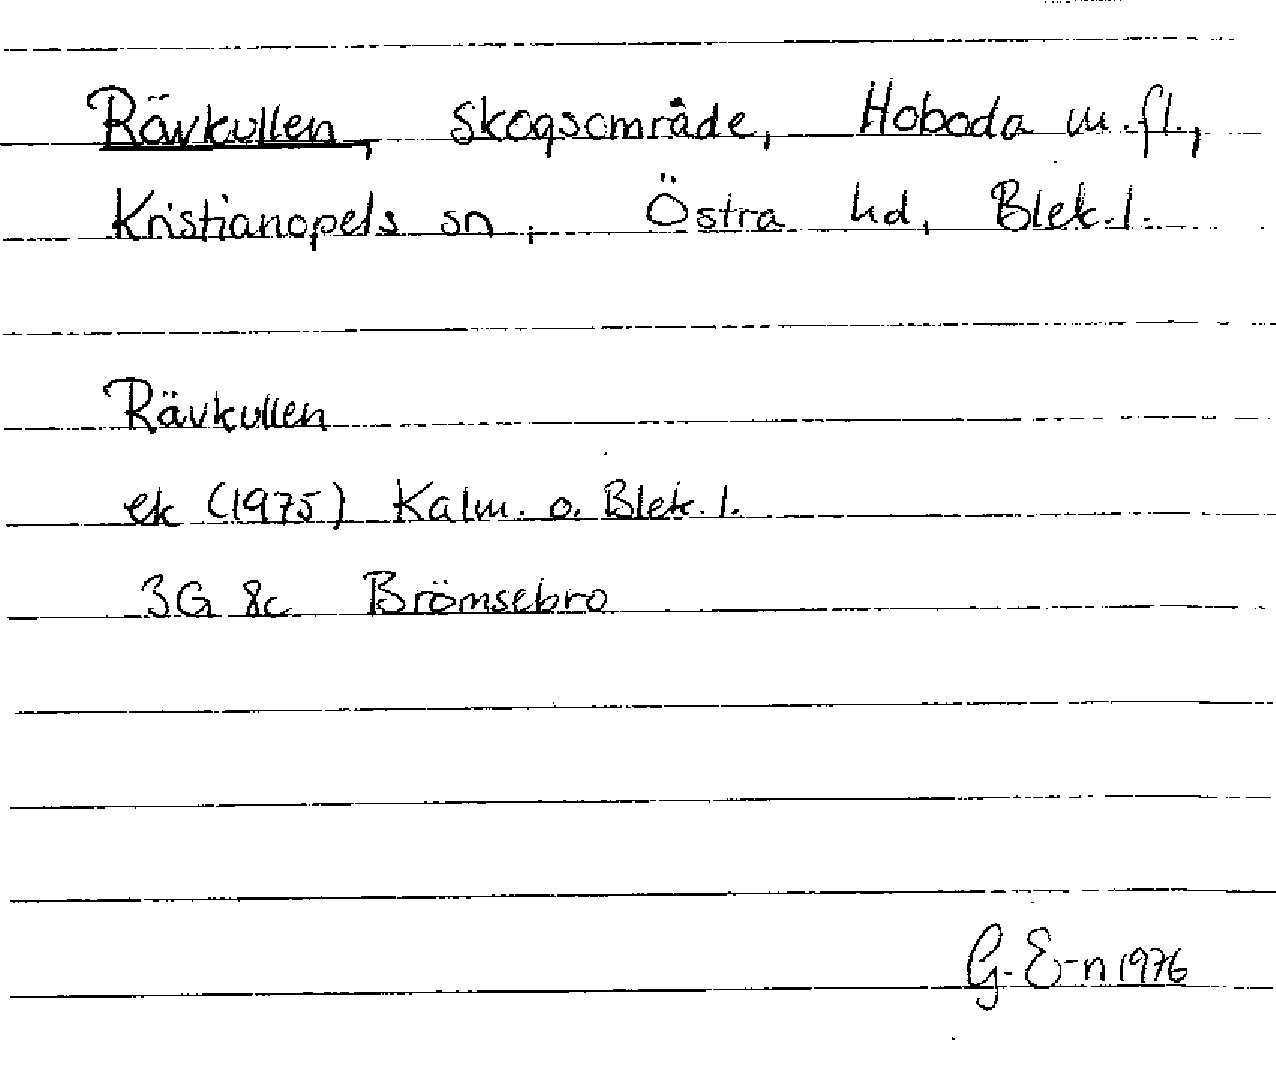 Rävkullen, skogsområde, Hoboda m.fl.,
Kristianopels sn, Östra hd, Blek.l.
Rävkullen
ek (1975) Kalm. o. Blek. l.
3G 8c Brömsebro
G. E-n 1976